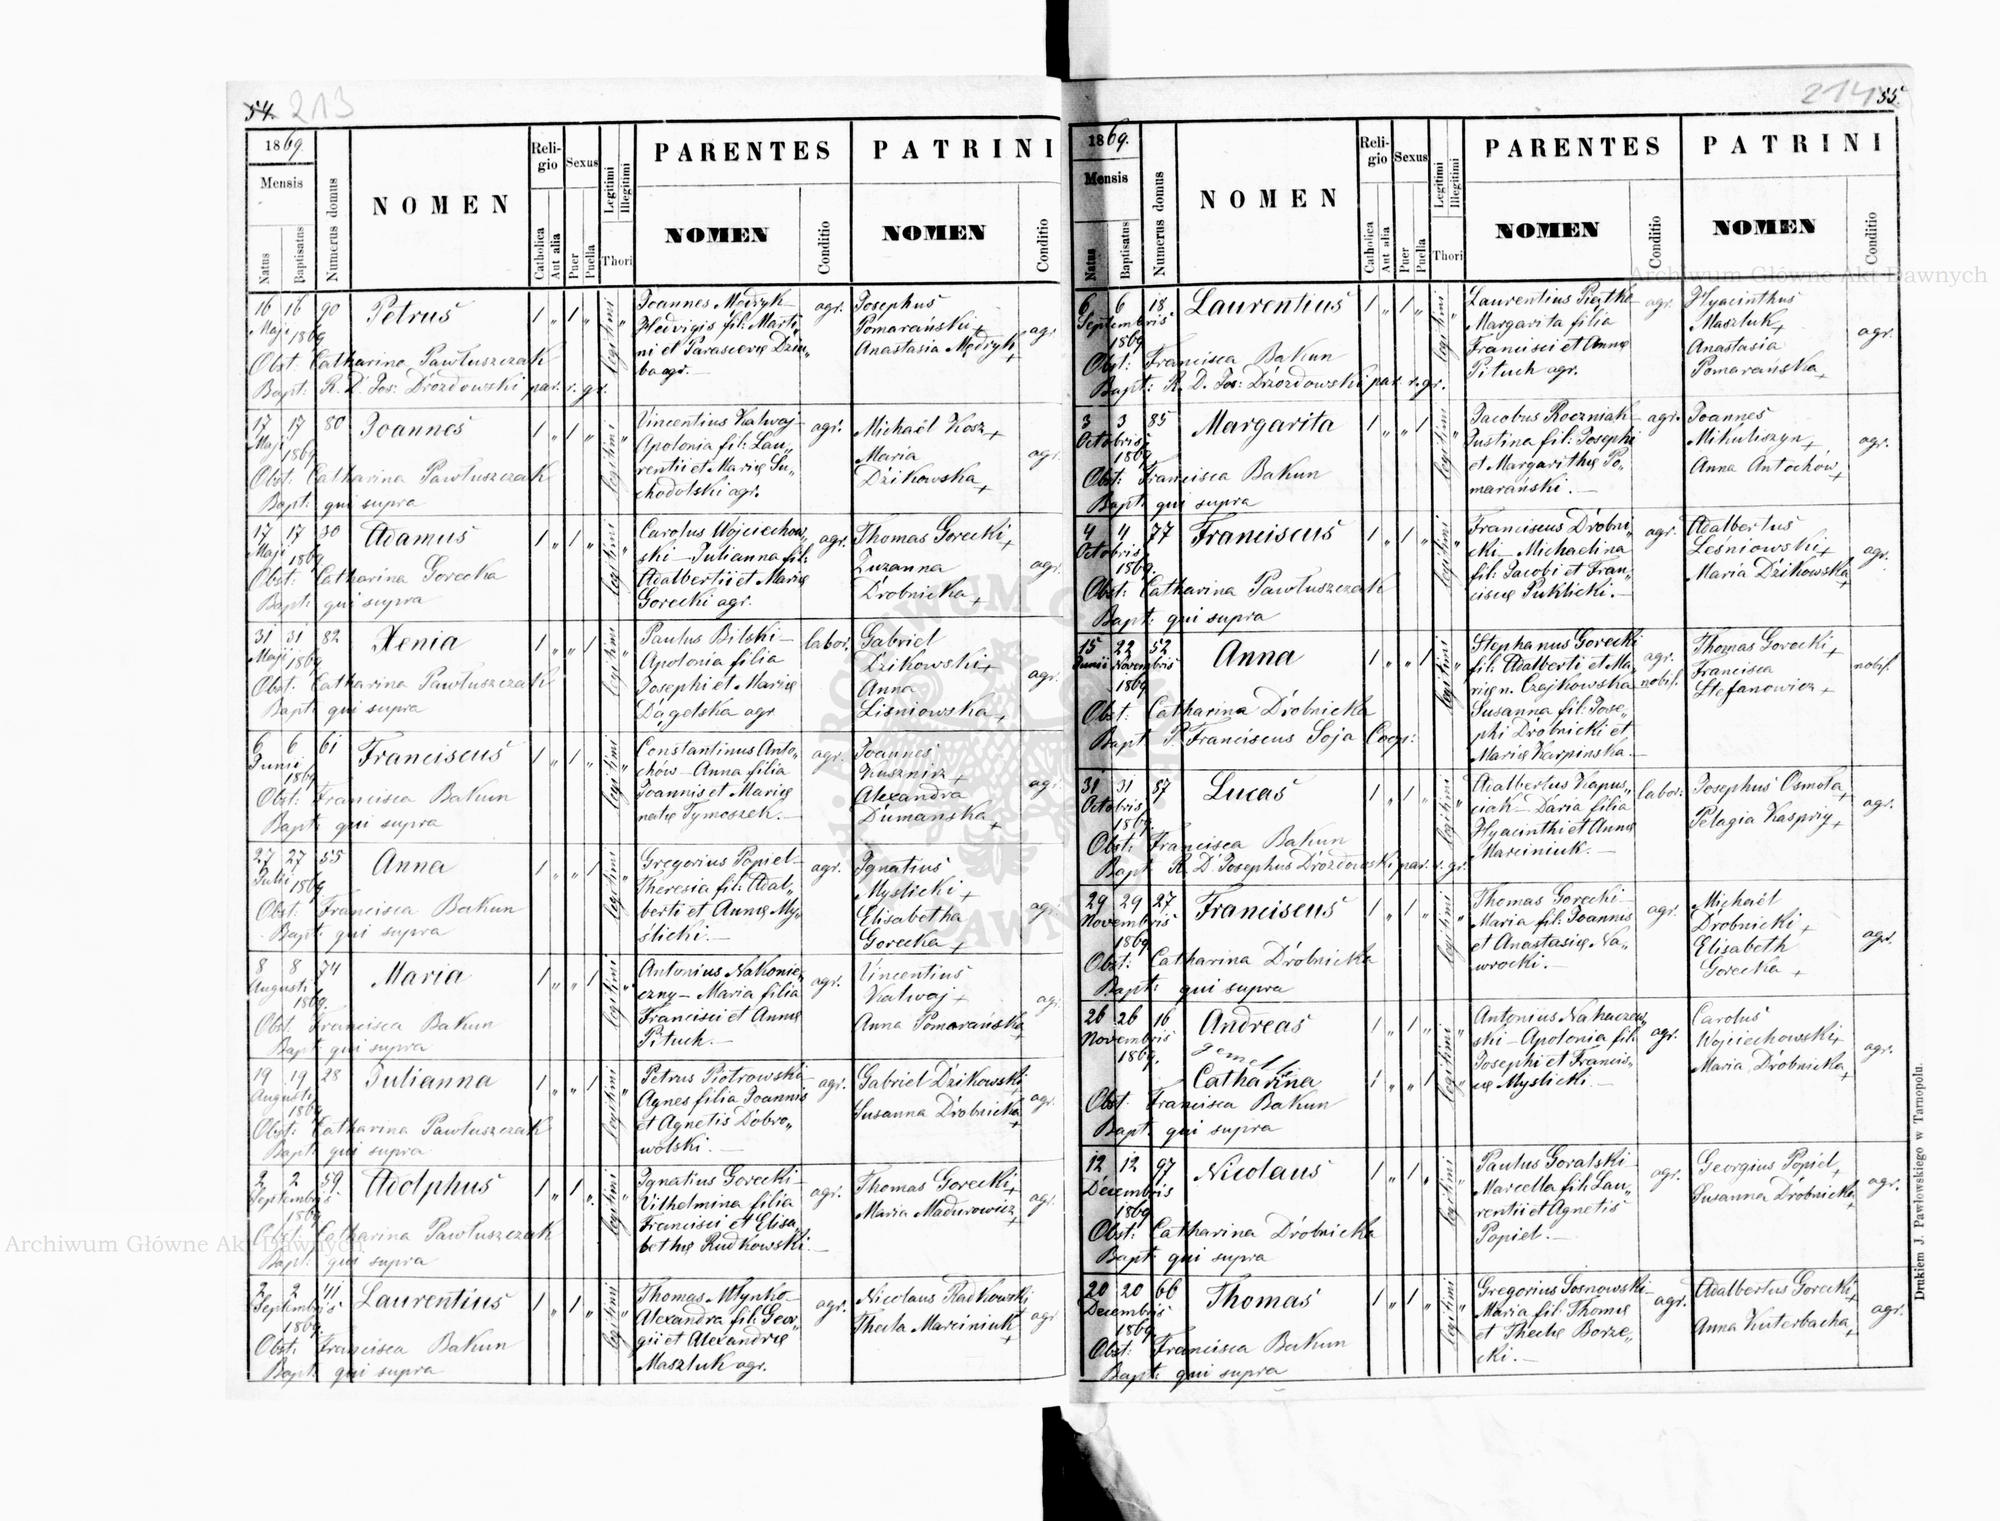 54. 213
1869.
Mensis
Natus
Baptisatus
Numerus domus
NOMEN
Religio
Catholica
Aut alia
Sexus
Puer
Puella
Legitimi
Illegitimi
Thori
PARENTES
NOMEN
Conditio
PATRINI
NOMEN
Conditio
16 16 90 Petrus 1 „ 1 „ legitimi „
Maji 1869
Obst: Catharina Pawłuszczak
Bapt: R. D. Jos: Drozdowski par. r. gr.
Joannes Mędryk –
Hedvigis fil: Marti„
ni et Parascevę Dziu„
ba agr. –
agr.
Josephus
Pomarański +
Anastasia Mędryk +
agr.
17 17 80 Joannes 1 „ 1 „ legitimi „
Maji 1869
Obst: Catharina Pawłuszczak
Bapt: qui supra
Vincentius Kalwaj –
Apolonia fil: Lau„
rentii et Marię Su„
chodolski agr.
agr.
Michaël Kosz +
Maria
Dzikowska +
agr.
17 17 30 Adamus 1 „ 1 „ legitimi „
Maji 1869
Obst: Catharina Gorecka
Bapt: qui supra
Carolus Wojciechow„
ski – Julianna fil:
Adalbertii et Marię
Gorecki agr.
agr.
Thomas Gorecki +
Zuzanna
Drobnicka +
agr.
31 31 82 Xenia 1 „ „ 1 legitimi „
Maji 1869
Obst: Catharina Pawłuszczak
Bapt: qui supra
Paulus Bilski –
Apolonia filia
Josephi et Marię
Dągelska agr
labor.
Gabriel
Dzikowski +
Anna
Lisniowska +
agr.
6 6 61 Franciscus 1 „ 1 „ legitimi „
Junii 1869
Obst: Francisca Bakun
Bapt: qui supra
Constantinus Anto„
chów – Anna filia
Joannis et Marię
natę Tymoszek. –
agr.
Joannes
Kusznirz +
Alexandra
Dumanska +
agr.
27 27 55 Anna 1 „ „ 1 legitimi „
Julii 1869
Obst: Francisca Bakun
Bapt: qui supra
Gregorius Popiel –
Theresia fil: Adal„
berti et Annę My„
slicki. –
agr.
Ignatius
Myslicki +
Elisabetha
Gorecka +
agr.
8 8 74 Maria 1 „ „ 1 legitimi „
Augusti 1869.
Obst. Francisca Bakun
Bapt qui supra
Antonius Nakonie„
czny – Maria filia
Francisci et Annę
Pituch. –
agr.
Vincentius
Kalwaj +
Anna Pomarańska +
agr.
19 19 28 Julianna 1 „ „ 1 legitimi „
Augusti 1869
Obst: Catharina Pawłuszczak
Bapt: qui supra
Petrus Piotrowski –
Agnes filia Joannis
et Agnetis Dobro„
wolski. –
agr.
Gabriel Dzikowski +
Susanna Drobnicka +
agr.
2 2 59. Adolphus 1 „ 1 „ legitimi „
Septembris 1869
Obst: Catharina Pawłuszczak
Bapt: qui supra
Ignatius Gorecki –
Vilhelmina filia
Francisci et Elisa„
bethę Rudkowski. –
agr.
Thomas Gorecki +
Maria Madurowicz +
agr.
2 2 41 Laurentius 1 „ 1 „ legitimi „
Septembris 1869.
Obst: Francisca Bakun
Bapt: qui supra
Thomas Młynko –
Alexandra fil: Geor„
gii et Alexandrę
Maszluk agr.
agr.
Nicolaus Radkowski
Thecla Marciniuk +
agr
214 55.
1869.
Mensis
Natus
Baptisatus
Numerus domus
NOMEN
Religio
Catholica
Aut alia
Sexus
Puer
Puella
Legitimi
Illegitimi
Thori
PARENTES
NOMEN
Conditio
PATRINI
NOMEN
Conditio
6 6 18 Laurentius 1 „ 1 „ legitimi „
Septembris 1869
Obst: Francisca Bakun
Bapt: R. D. Jos: Drozdowski par. r. gr.
Laurentius Piątko
Margarita filia
Francisci et Annę
Pituch agr.
agr.
Hyacinthus
Maszluk +
Anastasia
Pomarańska +
agr.
3 3 85 Margarita 1 „ „ 1 legitimi „
Octobris 1869.
Obst: Francisca Bakun
Bapt: qui supra
Jacobus Roczniak –
Justina fil: Josephi
et Margarithę Po„
marański. –
agr.
Joannes
Mikuliszyn +
Anna Antochów +
agr.
4 4 77 Franciscus 1 „ 1 „ legitimi „
Octobris 1869.
Obst: Catharina Pawłuszczak
Bapt: qui supra
Franciscus Drobni„
cki – Michaelina
fil: Jacobi et Fran„
ciscę Puklicki. –
agr.
Adalbertus
Leśniowski +
Maria Dzikowska +
agr.
15 22 52 Anna 1 „ „ 1 legitimi „
Junii Novembris 1869
Obst: Catharina Drobnicka
Bapt P. Franciscus Soja Coop:
Stephanus Gorecki
fil: Adalberti et Ma„
rię n. Czajkowska
Susanna fil: Jose„
phi Drobnicki et
Marię Karpinska. –
agr.
nobil.
Thomas Gorecki +
Francisca
Stefanowicz +
nobil.
31 31 87 Lucas 1 „ 1 „ legitimi „
Octobris 1869
Obst: Francisca Bakun
Bapt R. D. Josephus Drozdowski par. r. gr.
Adalbertus Kapus„
ciak – Daria filia
Hyacinthi et Annę
Marciniuk. –
labor:
Josephus Osmola +
Pelagia Kaspriy +
agr.
29 29 27 Franciscus 1 „ 1 „ legitimi „
Novembris 1869
Obst: Catharina Drobnicka
Bapt: qui supra
Thomas Gorecki –
Maria fil: Joannis
et Anastasię Na„
wrocki. –
agr.
Michaël
Drobnicki +
Elisabeth
Gorecka +
agr.
26 26 16 Andreas 1 „ 1 „ legitimi „
Novembris 1869.
gemelli
Catharina 1 „ „ 1 legitimi „
Obst Francisca Bakun
Bapt: qui supra
Antonius Nahaczew„
ski – Apolonia fil:
Josephi et Francis„
cę Myslicki. –
agr.
Carolus
Wojciechowski +
Maria Drobnicka +
agr.
12 12 97 Nicolaus 1 „ 1 „ legitimi „
Decembris 1869
Obst: Catharina Drobnicka
Bapt: qui supra
Paulus Goralski –
Marcella fil: Lau„
rentii et Agnetis
Popiel. –
agr.
Georgius Popiel +
Susanna Drobnicki +
agr.
20 20 66 Thomas 1 „ 1 „ legitimi „
Decembris 1869
Obst: Francisca Bakun
Bapt: qui supra
Gregorius Sosnowski –
Maria fil: Thomę
et Theclę Borze„
cki. –
agr.
Adalbertus Gorecki +
Anna Kuterbacha +
agr.
Drukiem J. Pawłowskiego w Tarnopolu.
Archiwum Główne Akt Dawnych
Archiwum Główne Akt Dawnych